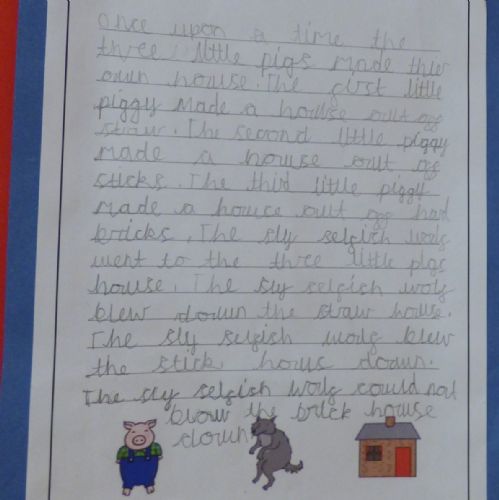 once upon a time the
three little pigs made thier
own house. The first little
piggy made a house out off
straw. The second little piggy
made a house out of
sticks. The third little piggy
made a house out off hard
bricks. The sly selfish wolf
went to the three little pigs
house. The sly selfish wolf
blew down the straw house.
The sly selfish wolf blew
the stick hous down.
The sly selfish wolf could not
blow the brick house
down